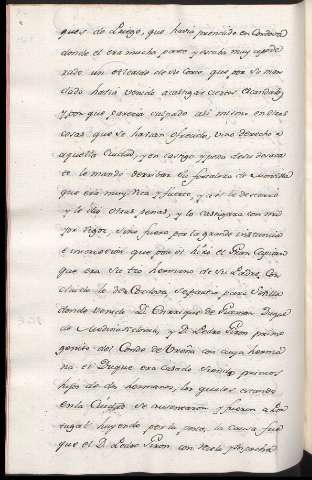 ques de Priego, que havia prendido en Cordova
donde el era mucha parte y estaba muy apode
rado un Alcalde de su Corte, que por su man
dado havia venido a castigar ciertos escandalos
y porque parecia culpado asi mismo en otras
cosas que se havian ofrecido, vino derecho a
aquella Ciudad, y en castigo y pena de su desaca
to le mando derribar la fortaleza de Montilla
que era muy rica y fuerte, y asi le desterrò
y le dio otras penas, y lo castigara con ma
yor rigor, sino fuera por la grande instancia
e intercesion que por el hizo el Gran Capitan
que era su tio hermano de su Padre, con
cluido lo de Cordova, se partio para Sevilla
donde venido D. Enrrique de Guzman Duque
de Medina Sidonia, y D. Pedro Giron primo
genito del Conde de Ureña con cuya herma
na el Duque era casado siendo primos
hijos de dos hermanas, los quales estando
en la Ciudad se ausentaron y fueron a Por
tugal huyendo por la posta, la causa fue
que el D. Pedro Giron con